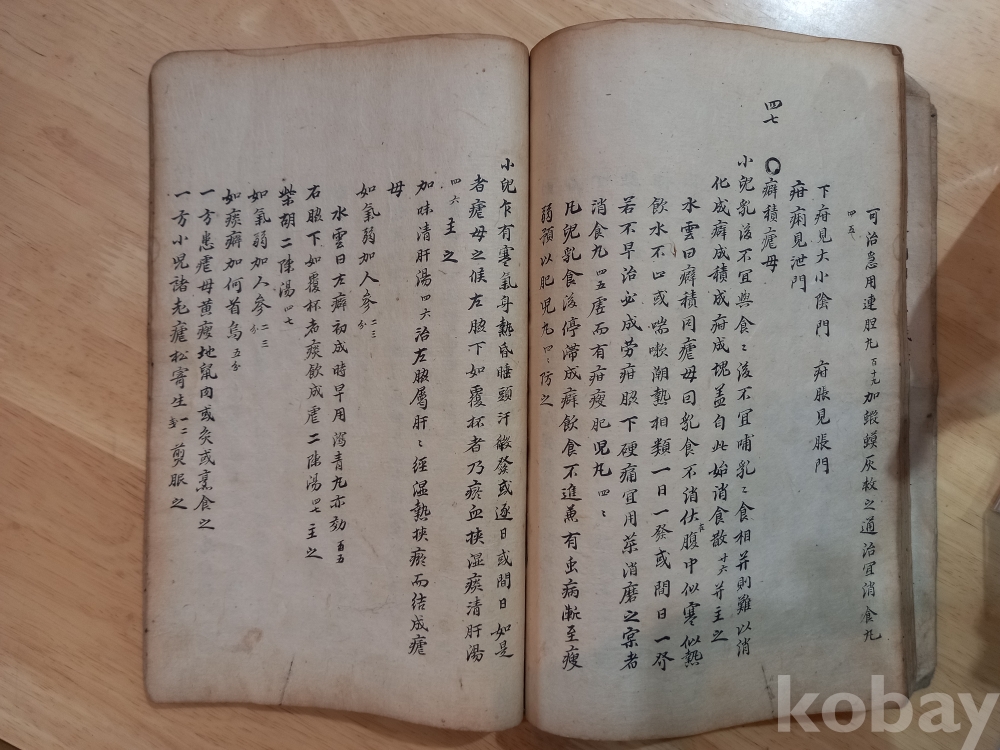 可治急用連胆九百十九加蝦蟆灰救之通治宜消食九
四五
下疳見大小陰門　疳脹見脹門
疳痢見泄門
四七
癖積瘧母
小兒乳後不宜與食〻後不宜哺乳〻食相并則難以消
化成癖成積成疳成塊盖自此始消食散廿六并主之
水雲曰癖積同瘧母曰乳食不消伏在腹中似寒似熱
飲水不止或喘嗽潮熱相類一日一發或間日一發
若不早治必成劳疳脹下硬痛宜用藥消磨之禀者
消食九四五虛而有疳瘦肥児九四〻
凡兒乳食後停滯成癖飲食不進兼有虫病漸至瘦
弱預以肥児九四〻防之
小兒乍有寒氣身熱昏睡頭汗敏發或逐日或間日如是
者瘧母之候左脇下如覆杯者乃瘀血挾湿痰清肝湯
四六主之
加味清肝湯四六治左脇屬肝〻經湿熱挾瘀而結成瘧
母
如氣弱加人參二三分
水雲曰左癖初成時早用瀉青九亦効百五
右脇下如覆杯者痰飲成瘧二陳湯四七主之
柴胡二陳湯四七
如氣弱加人參二三分
如痰癖加何首烏五分
一方患瘧母黄瘦地鼠肉或炙或烹食之
一方小児諸老瘧松寄生一二戔煎服之
kobay